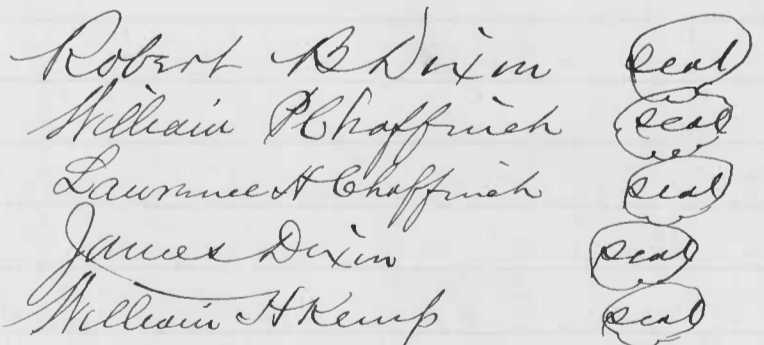 Robert B Dixon seal
William P Chaffinch seal
Lawrence H Chaffinch seal
James Dixon seal
William H Kemp seal